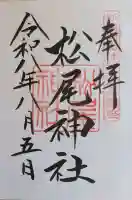 奉拝
松尾神社
令和八年八月五日